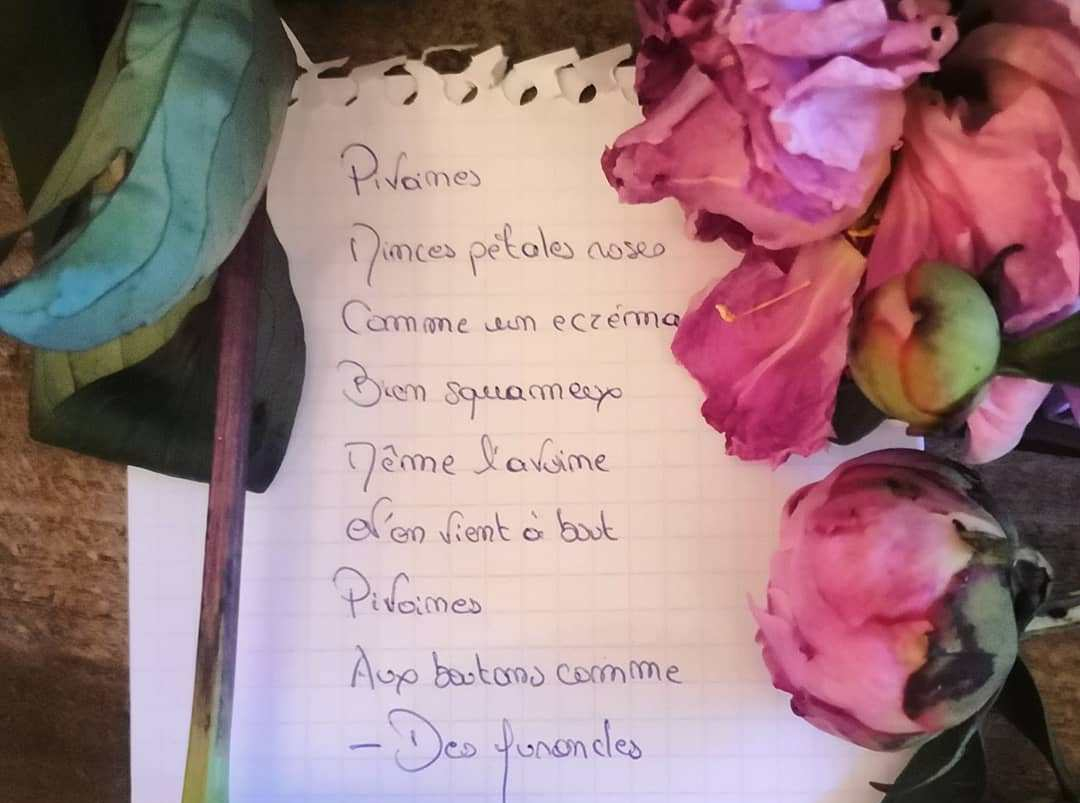 Pivoines
Minces pétales roses
Comme un eczéma
Bien squameux
Même l'avoine
N'en vient à bout
Pivoines
Aux boutons comme
- Des furoncles